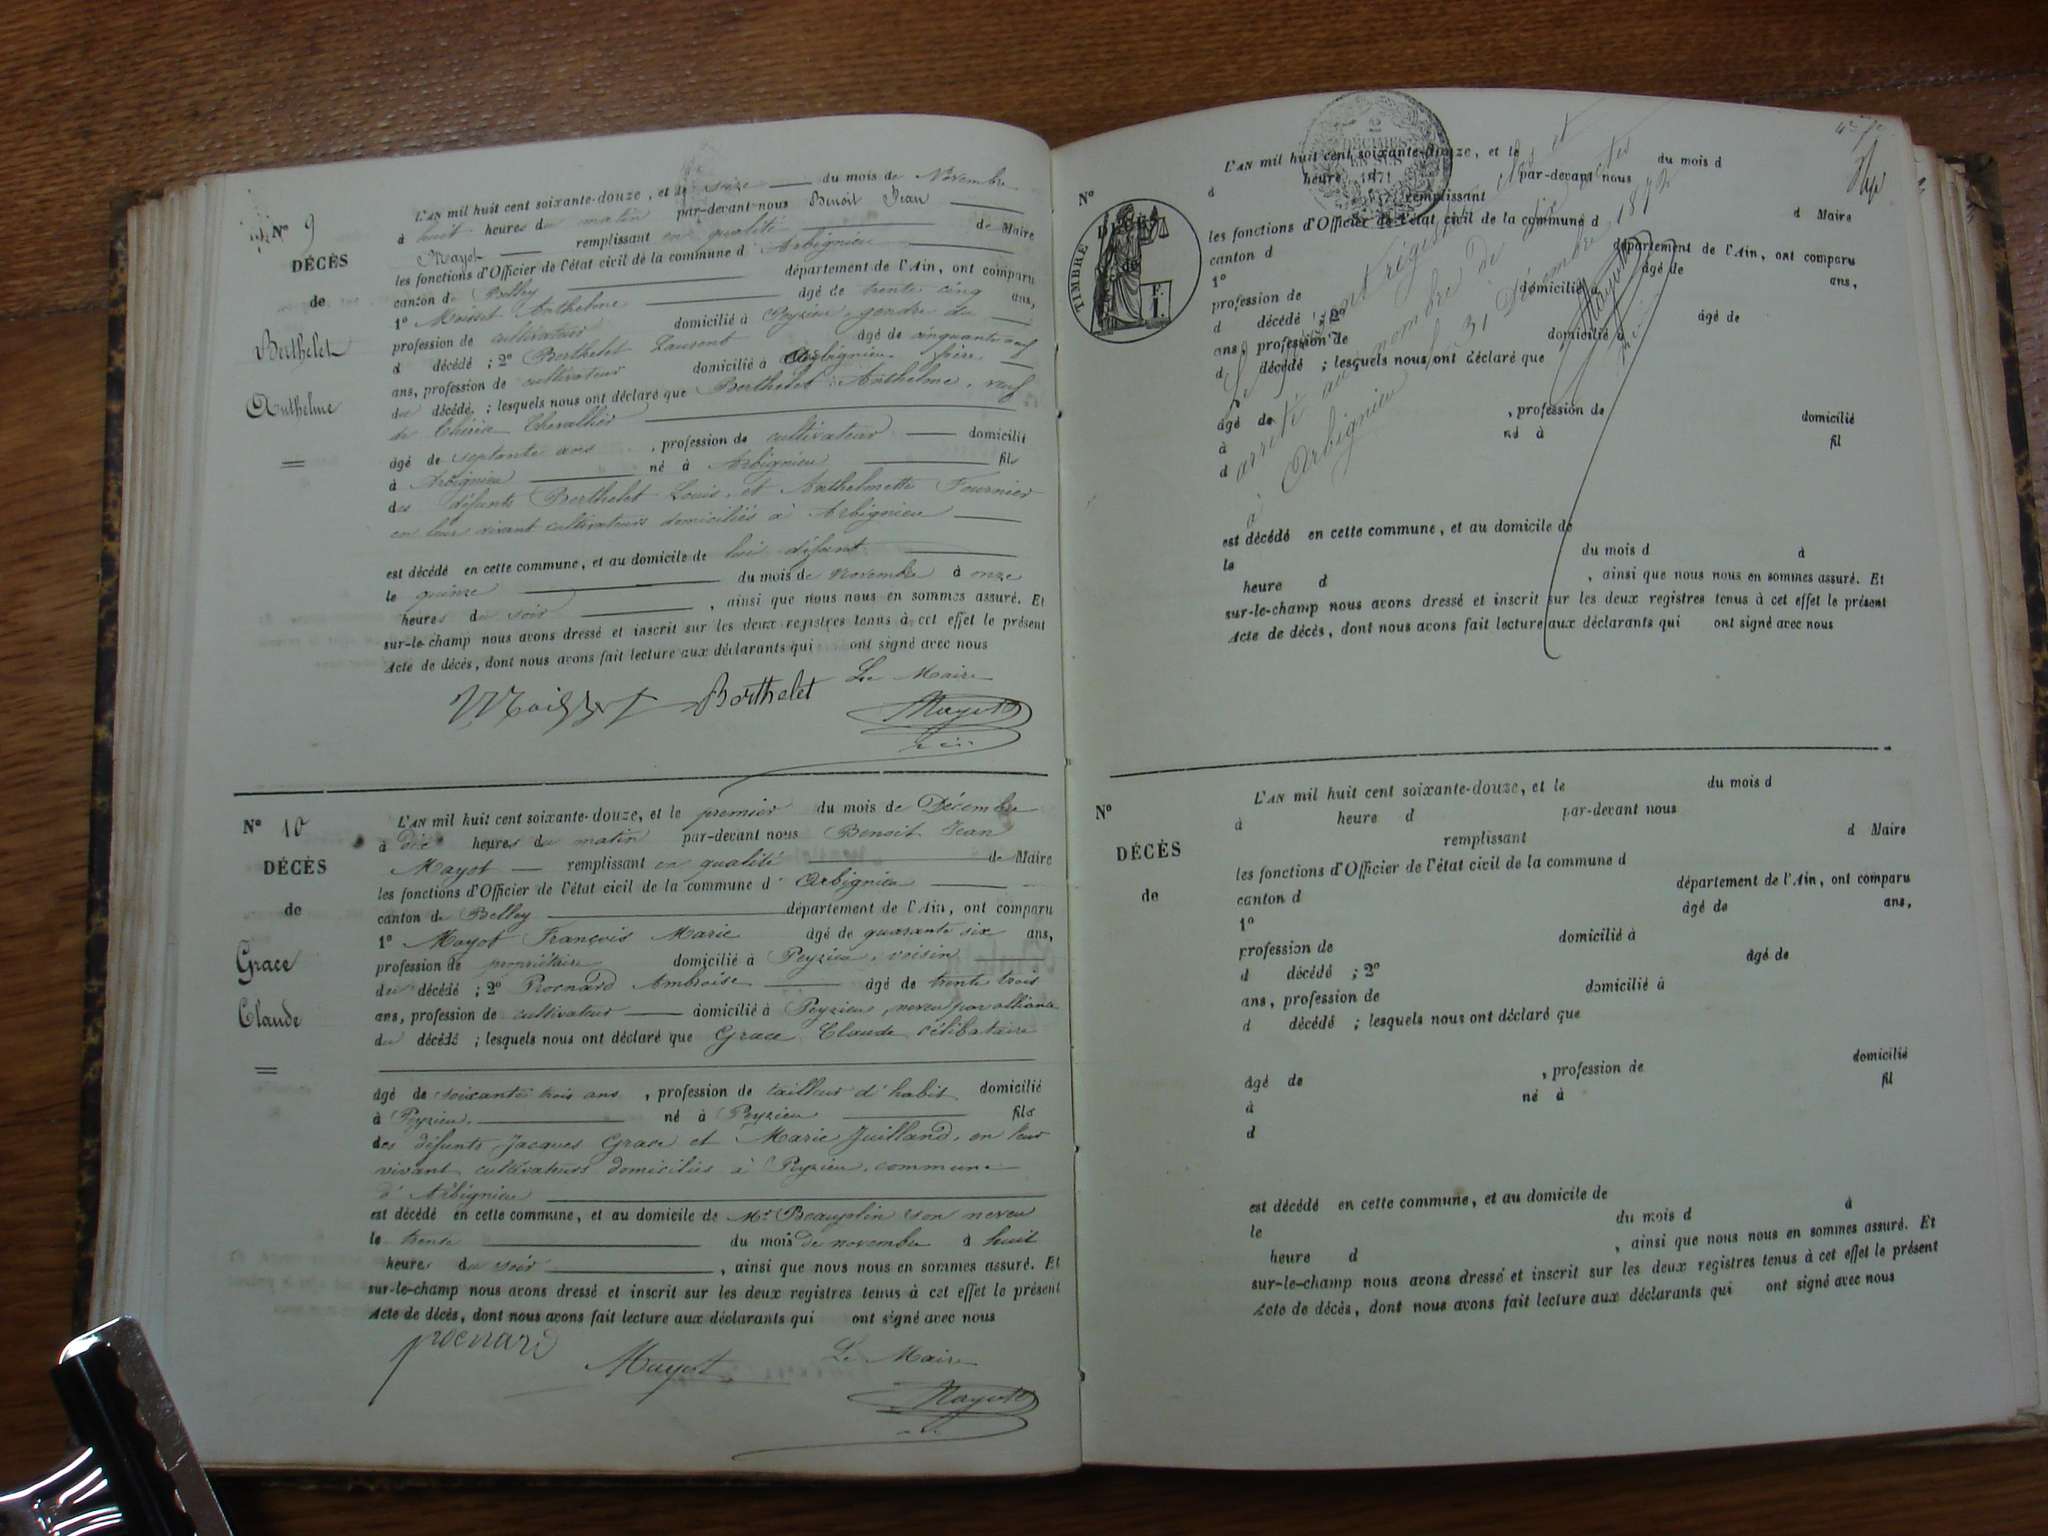 N° 9
DÉCÈS
de
Berthelet
Anthelme
L'AN mil huit cent soixante-douze, et le seize du mois de Novembre
à huit heures du matin par-devant nous Benoit Jean
Mayot remplissant en qualité de Maire
les fonctions d'Officier de l'état civil de la commune d'Arbignieu
canton de Belley département de l'Ain, ont comparu
1° Anthelme âgé de trente cinq ans,
profession de cultivateur domicilié à Peyzieu, gendre du
d décédé ; 2° Berthelet Laurent âgé de cinquante neuf
ans, profession de cultivateur domicilié à Arbignieu, frère
du décédé ; lesquels nous ont déclaré que Berthelet Anthelme, veuf
de Chevallier
âgé de septante ans, profession de cultivateur domicilié
à Arbignieu né à Arbignieu fils
des défunts Berthelet Louis, et Anthelmette Fournier
en leur vivant cultivateurs domiciliés à Arbignieu
est décédé en cette commune, et au domicile de lui défunt
le quinze du mois de novembre à onze
heures du soir, ainsi que nous nous en sommes assuré. Et
sur-le-champ nous avons dressé et inscrit sur les deux registres tenus à cet effet le présent
Acte de décès, dont nous avons fait lecture aux déclarants qui ont signé avec nous
Le Maire
Berthelet
Mayot
N° 10
DÉCÈS
de
Grace
Claude
L'AN mil huit cent soixante-douze, et le premier du mois de Décembre
à dix heures du matin par-devant nous Benoit Jean
Mayot remplissant en qualité de Maire
les fonctions d'Officier de l'état civil de la commune d'Arbignieu
canton de Belley département de l'Ain, ont comparu
1° Mayot François Marie âgé de quarante six ans,
profession de propriétaire domicilié à Peyzieu, voisin
du décédé ; 2° Procnard Ambroise âgé de trente trois
ans, profession de cultivateur domicilié à Peyzieu, neveu par alliance
du décédé ; lesquels nous ont déclaré que Grace Claude célibataire
âgé de soixante trois ans, profession de tailleur d'habit domicilié
à Peyzieu, né à Peyzieu fils
des défunts Jacques Grace et Marie Juilland, en leur
vivant cultivateurs domiciliés à Peyzieu, commune
d'Arbignieu
est décédé en cette commune, et au domicile de Mr Beauplin son neveu
le trente du mois de novembre à huit
heures du soir, ainsi que nous nous en sommes assuré. Et
sur-le-champ nous avons dressé et inscrit sur les deux registres tenus à cet effet le présent
Acte de décès, dont nous avons fait lecture aux déclarants qui ont signé avec nous
Procnard
Mayot
Le Maire
Mayot
N°
TIMBRE
DÉCIMES
EN SUS
1871
L'AN mil huit cent soixante-douze, et le du mois d
à heure d par-devant nous
remplissant d Maire
les fonctions d'Officier de l'état civil de la commune d
canton d département de l'Ain, ont comparu
1° âgé de ans,
profession de domicilié à
d décédé ; 2° âgé de
ans, profession de domicilié à
d décédé ; lesquels nous ont déclaré que
âgé de , profession de domicilié
à né à fil
d
Le présent registre
arrêté au nombre de
à Arbignieu le 31 Décembre 1872
est décédé en cette commune, et au domicile de
le du mois d à
heure d , ainsi que nous nous en sommes assuré. Et
sur-le-champ nous avons dressé et inscrit sur les deux registres tenus à cet effet le présent
Acte de décès, dont nous avons fait lecture aux déclarants qui ont signé avec nous
N°
DÉCÈS
de
L'AN mil huit cent soixante-douze, et le du mois d
à heure d par-devant nous
remplissant d Maire
les fonctions d'Officier de l'état civil de la commune d
canton d département de l'Ain, ont comparu
1° âgé de ans,
profession de domicilié à
d décédé ; 2° âgé de
ans, profession de domicilié à
d décédé ; lesquels nous ont déclaré que
âgé de , profession de domicilié
à né à fil
d
est décédé en cette commune, et au domicile de
le du mois d à
heure d , ainsi que nous nous en sommes assuré. Et
sur-le-champ nous avons dressé et inscrit sur les deux registres tenus à cet effet le présent
Acte de décès, dont nous avons fait lecture aux déclarants qui ont signé avec nous